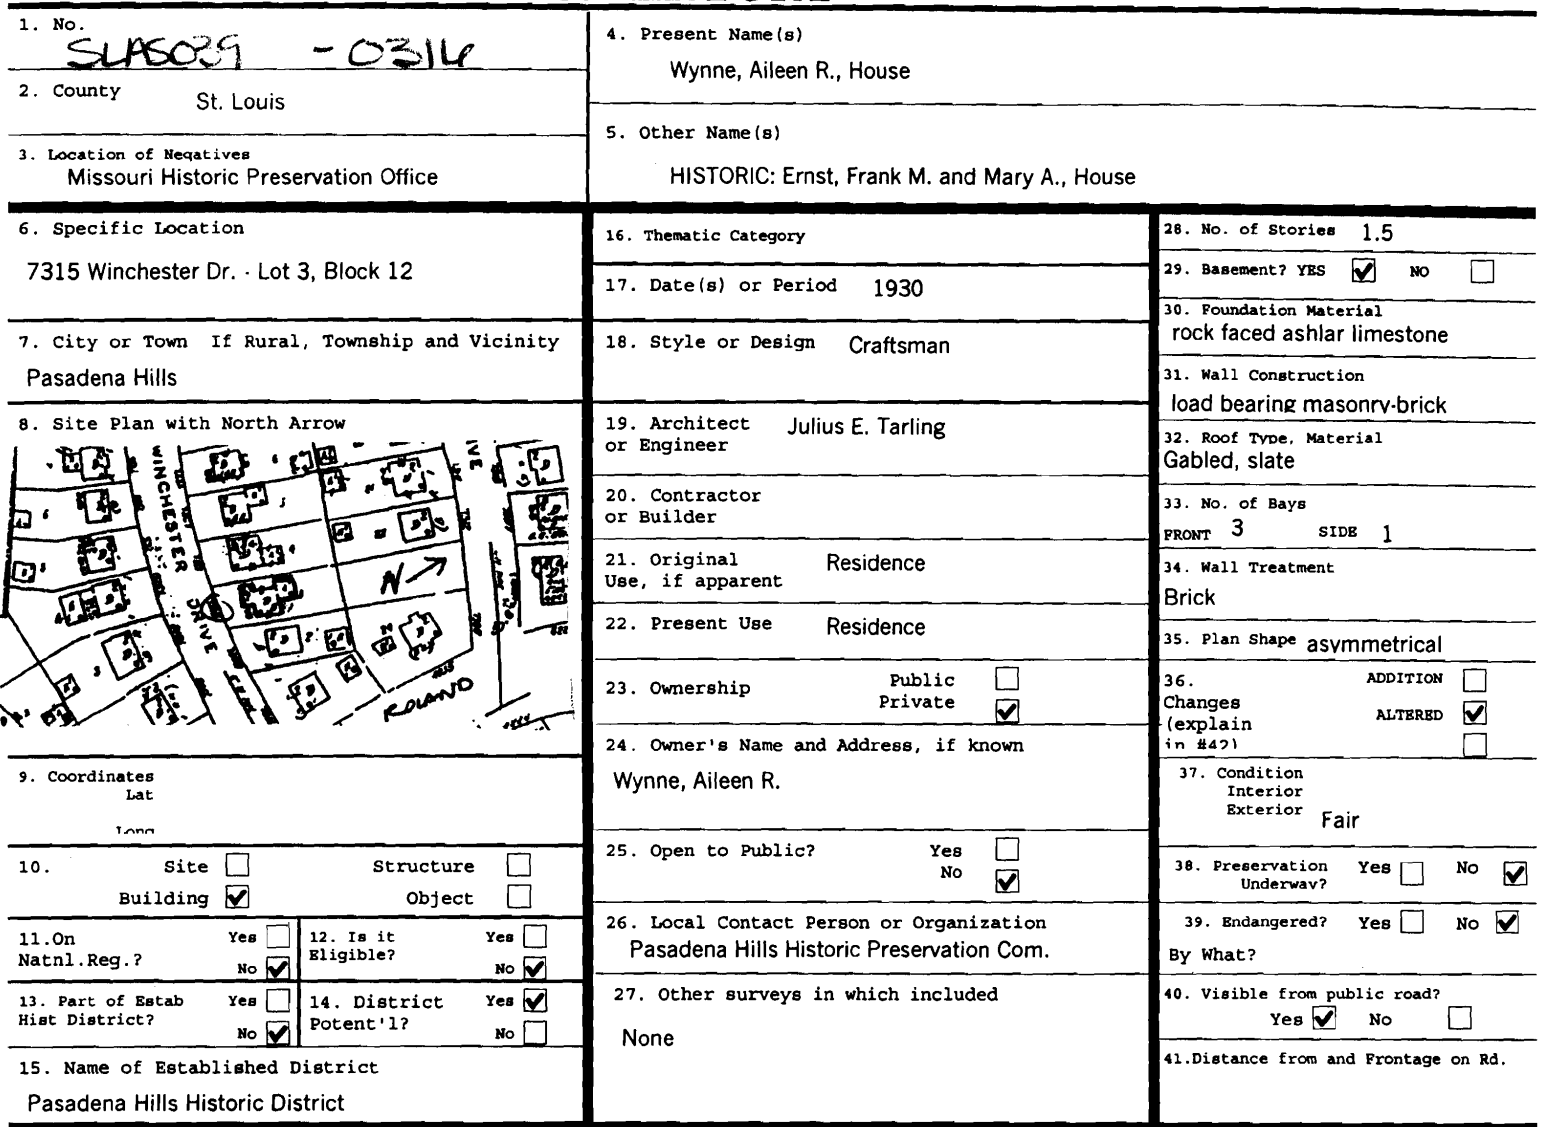 1. No.
SLAS039 - 0316
2. County St. Louis
3. Location of Negatives
Missouri Historic Preservation Office
4. Present Name(s)
Wynne, Aileen R., House
5. Other Name(s)
HISTORIC: Ernst, Frank M. and Mary A., House
6. Specific Location
7315 Winchester Dr. - Lot 3, Block 12
7. City or Town If Rural, Township and Vicinity
Pasadena Hills
8. Site Plan with North Arrow
WINCHESTER
DRIVE
VE
N
ROLAND
9. Coordinates
Lat
Long
10. Site Structure
Building ✔ Object
11.On Yes
Natnl.Reg.? No ✔
12. Is it Yes
Eligible? No ✔
13. Part of Estab Yes
Hist District? No ✔
14. District Yes ✔
Potent'l? No
15. Name of Established District
Pasadena Hills Historic District
16. Thematic Category
17. Date(s) or Period 1930
18. Style or Design Craftsman
19. Architect Julius E. Tarling
or Engineer
20. Contractor
or Builder
21. Original Residence
Use, if apparent
22. Present Use Residence
23. Ownership Public
Private ✔
24. Owner's Name and Address, if known
Wynne, Aileen R.
25. Open to Public? Yes
No ✔
26. Local Contact Person or Organization
Pasadena Hills Historic Preservation Com.
27. Other surveys in which included
None
28. No. of Stories 1.5
29. Basement? YES ✔ NO
30. Foundation Material
rock faced ashlar limestone
31. Wall Construction
load bearing masonry-brick
32. Roof Type, Material
Gabled, slate
33. No. of Bays
FRONT 3 SIDE 1
34. Wall Treatment
Brick
35. Plan Shape asymmetrical
36. ADDITION
Changes
(explain ALTERED ✔
in #42)
37. Condition
Interior
Exterior Fair
38. Preservation Yes No ✔
Underway?
39. Endangered? Yes No ✔
By What?
40. Visible from public road?
Yes ✔ No
41.Distance from and Frontage on Rd.